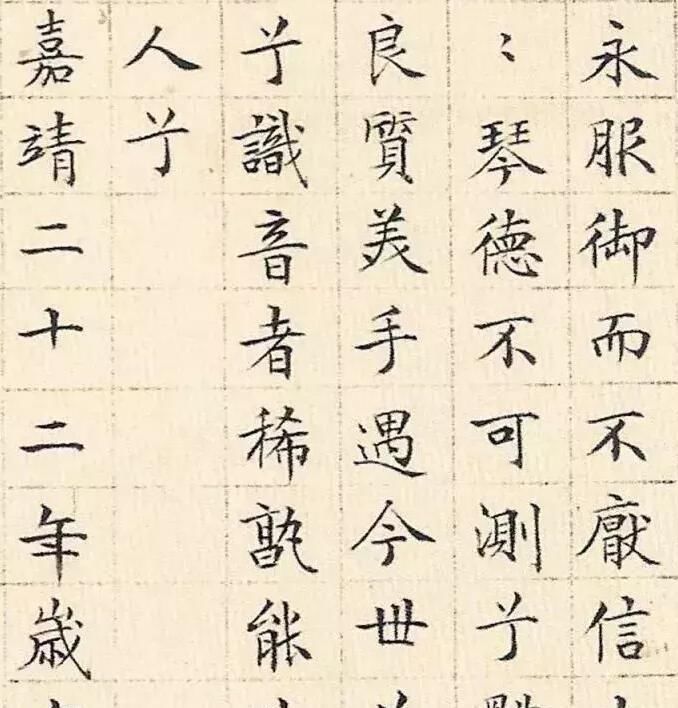 永服御而不厭信
〻琴德不可測兮
良質美手遇今世
兮識音者稀孰能
人兮
嘉靖二十二年歲